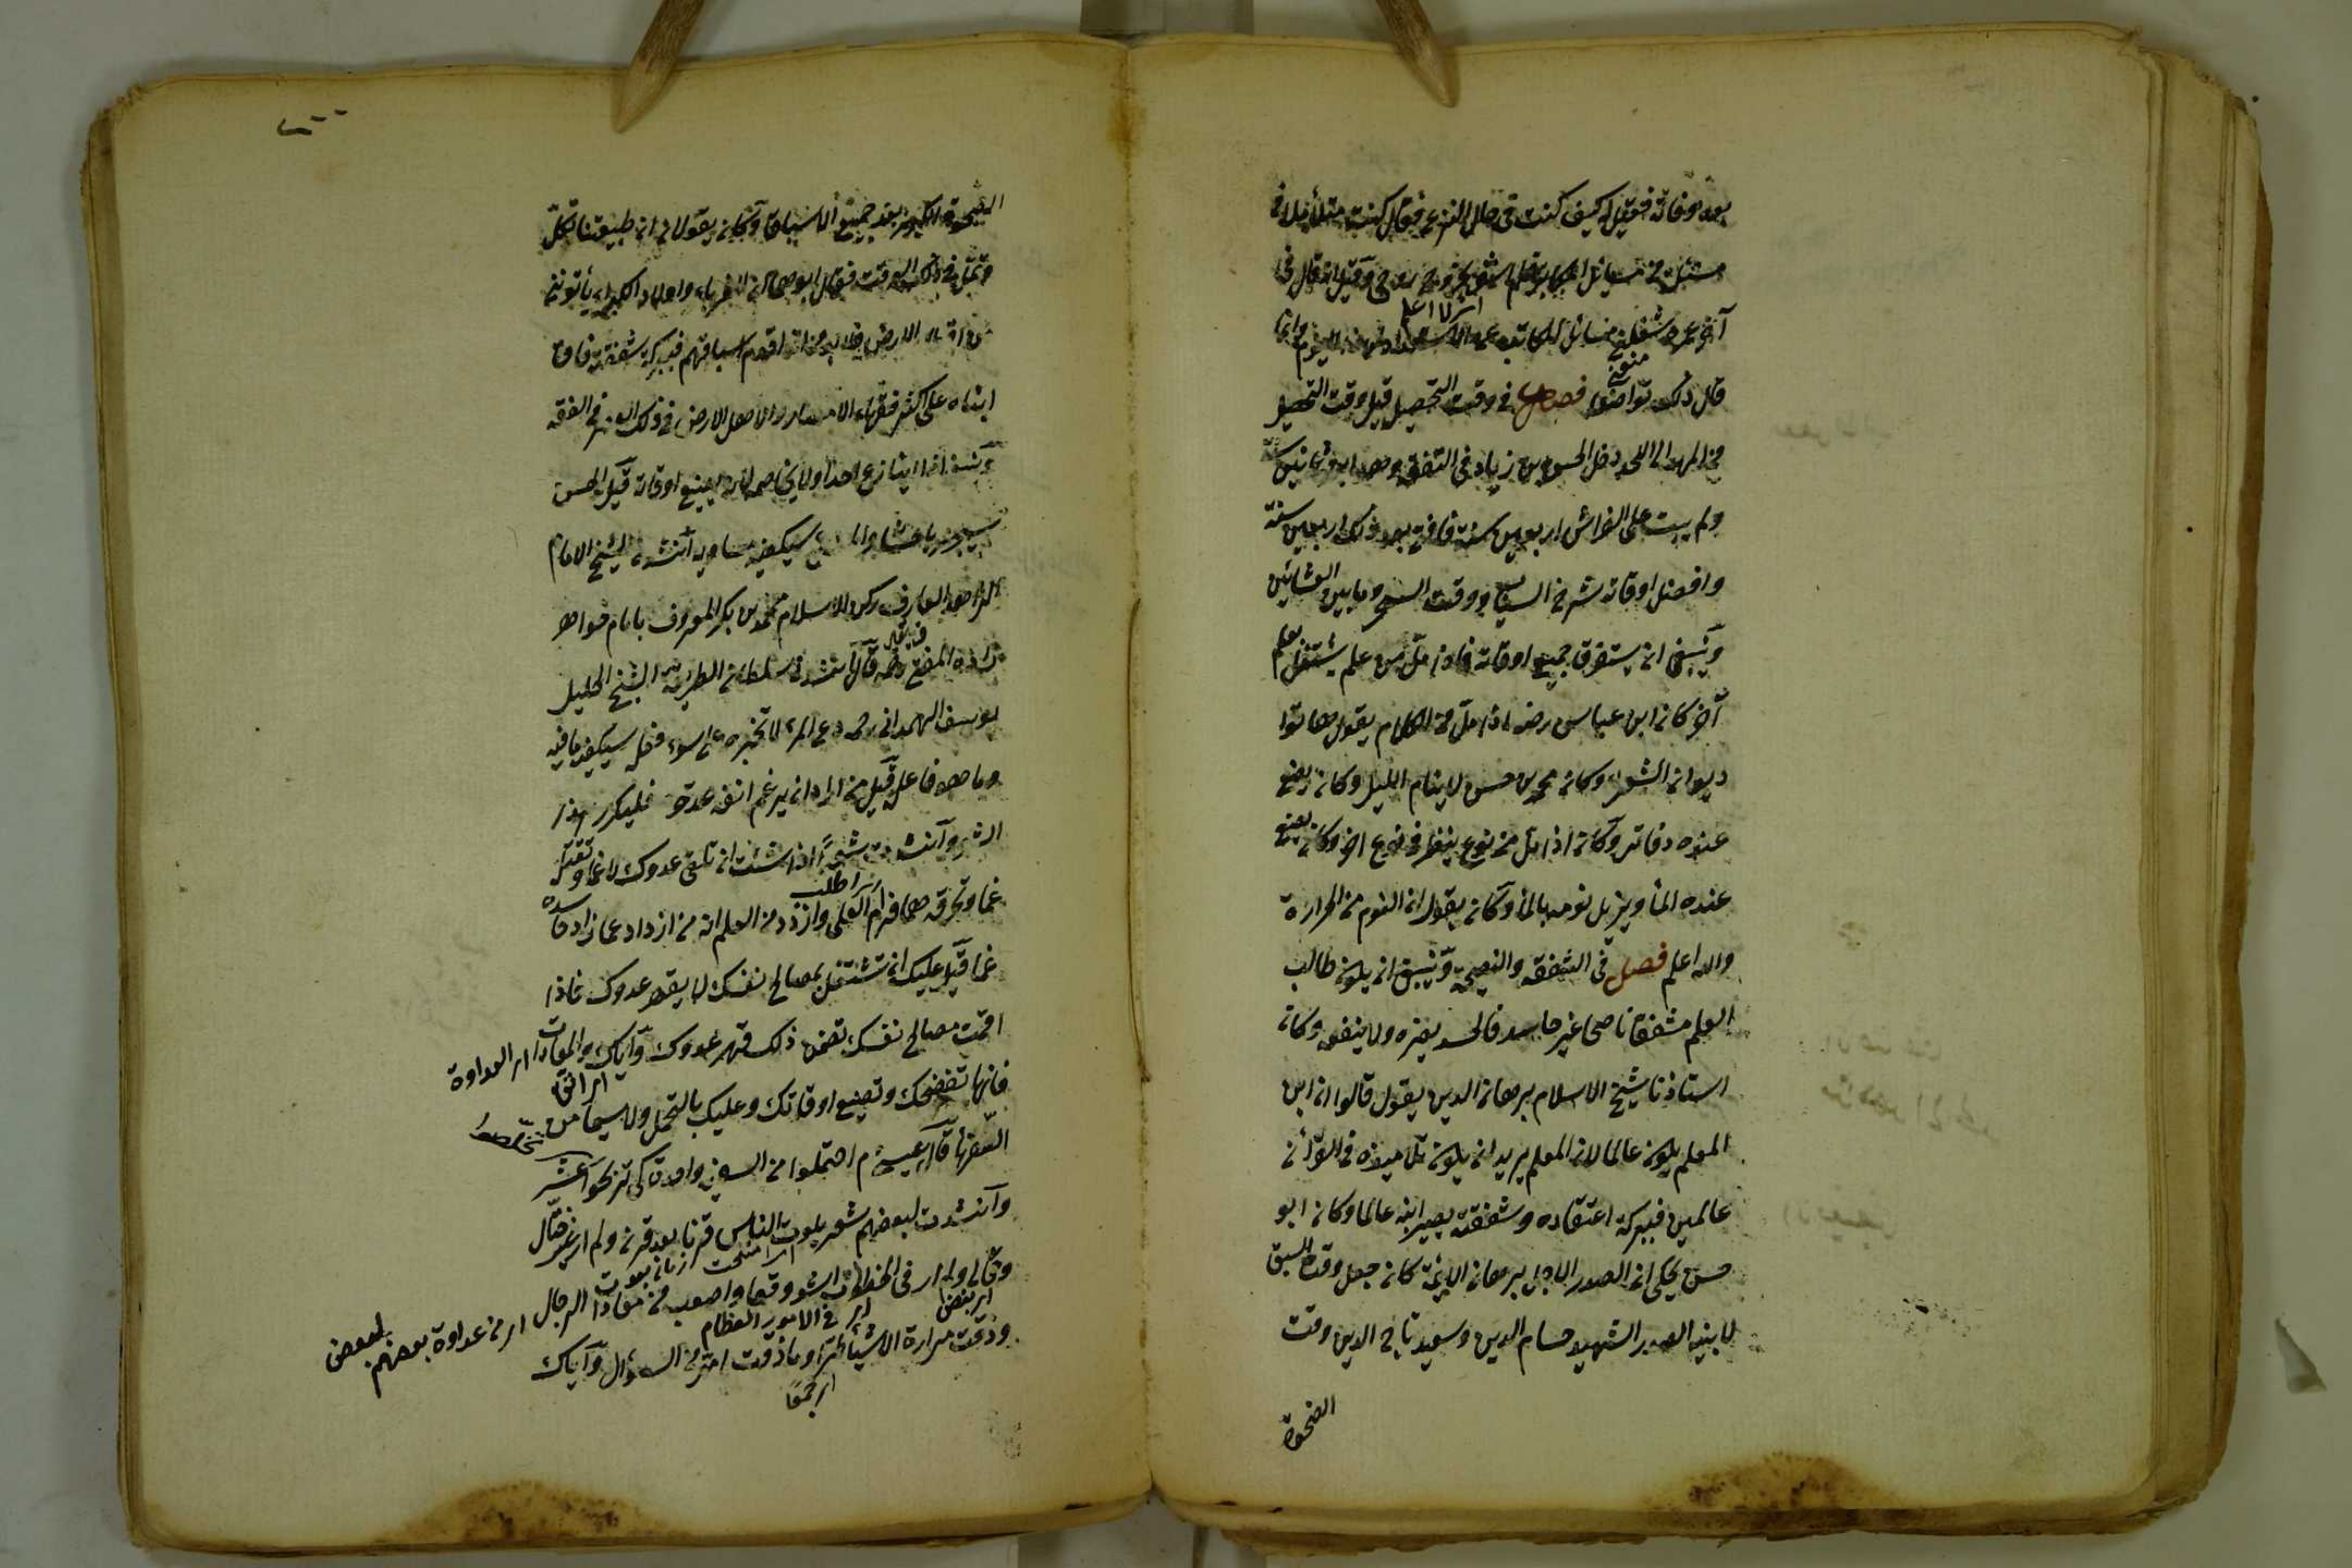 بعد وفاته فقيل له كيف كنت في حال النزع فقال كنت متأملا في
مسئلة من مسائل المكاتب فلم اشعر بخروج روحي وقيل انه قال في
آخر عمره شغلتني مسائل المكاتب عن الاستعداد لهذا اليوم وانما
قال ذلك تواضعا فصل في وقت التحصيل قيل وقت التحصيل
من المهد الى اللحد دخل الحسن بن زياد في التفقه وهو ابن ثمانين سنة
ولم يبت على الفراش اربعين سنة فافتى بعد ذلك اربعين سنة
وافضل اوقاته شرخ الشباب ووقت السحر وما بين العشائين
وينبغي ان يستغرق جميع اوقاته فاذا مل من علم يشتغل بعلم
آخر كان ابن عباس رضه اذا مل من الكلام يقول هاتوا
ديوان الشعراء وكان محمد بن حسن لا ينام الليل وكان يضع
عنده دفاتر وكان اذا مل من نوع ينظر في نوع آخر وكان يضع
عنده الماء ويزيل نومه بالماء وكان يقول ان النوم من الحرارة
والله اعلم فصل في الشفقة والنصيحة وينبغي ان يكون طالب
العلم مشفقا ناصحا غير حاسد فالحسد يضره ولا ينفعه وكان
استاذنا شيخ الاسلام برهان الدين يقول قالوا ان ابن
المعلم يكون عالما لان المعلم يريد ان يكون تلاميذه في القرآن
عالمين فببركة اعتقاده وشفقته يصير ابنه عالما وكان ابو
حسن يحكى ان الصدر الاجل برهان الائمة كان جعل وقت السبق
لابنيه الصدر الشهيد حسام الدين وسعيد تاج الدين وقت
الضحوة
الضحوة الكبرى بعد جميع الاسباق وكان يقولان ان طبيعتنا تكل
وتمل في ذلك الوقت فقال ابوهما ان الغرباء واولاد الكبراء يأتونني
من اقطار الارض فلا بد من ان اقدم اسباقهم فببركة شفقته فاق
ابناه على اكثر فقهاء الامصار والاهل الارض في ذلك العصر في الفقه
وينبغي ان لا ينازع احدا ولا يخاصمه لانه يضيع اوقاته قيل المحسن
سيجزى باحسانه والمسيء سيكفيه مساويه انشدني الشيخ الامام
الزاهد العارف ركن الاسلام محمد بن بكر المعروف بامام خواهر
زاده المفتي رحمه قال انشدني سلطان الطريقة الشيخ الجليل
يوسف الهمداني رحمه دع المرء لا تجزه على سوء فعله سيكفيه ما فيه
وما هو فاعله قيل من اراد ان يرغم انف عدوه فليكرر هذا
الشعر وانشدت شعرا اذا شئت ان تلقى عدوك راغما وتقتله
غما وتحرقه هما فرام العلى وازدد من العلم انه من ازداد علما زاد حاسده
غما قيل عليك ان تشتغل بمصالح نفسك لا بقهر عدوك فاذا
اقمت مصالح نفسك تضمن ذلك قهر عدوك واياك والمعادات
اى العداوة
فانها تفضحك وتضيع اوقاتك وعليك بالتحمل ولا سيما من
السفهاء قال عيسى م احتملوا من السفيه واحدة كى تربحوا عشر
وانشدت لبعضهم شعر بلوت الناس قرنا بعد قرن ولم ار غير ختال
اى امتحنت
وقالي ولم ار في الخطوب اشد وقعا واصعب من معادا الرجال
اى بغض
اى في الامور العظام
اى من عداوة بعضهم لبعض
وذقت مرارة الاشياء طرا وما ذقت امر من السؤال واياك
اى جميعا